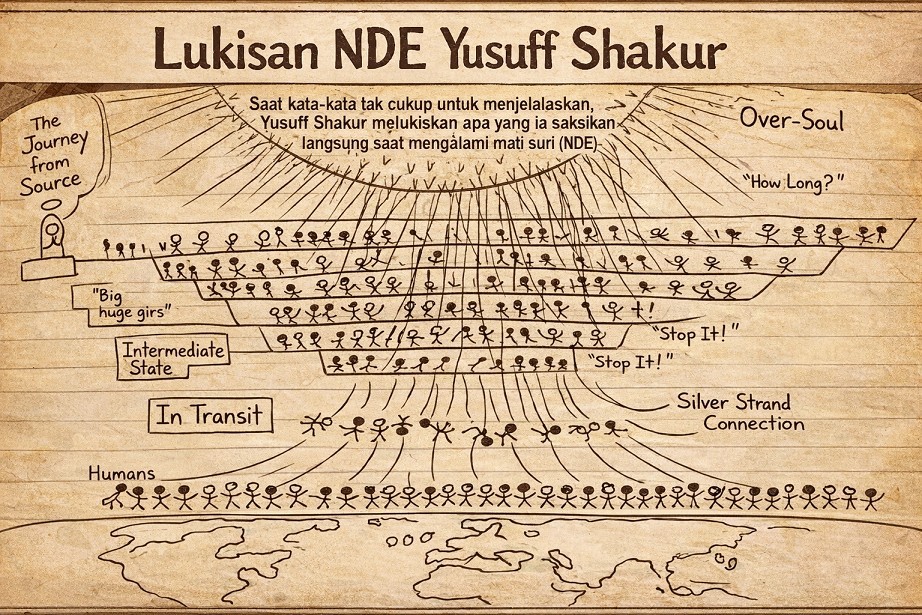 Lukisan NDE Yusuff Shakur
Saat kata-kata tak cukup untuk menjelalaskan,
Yusuff Shakur melukiskan apa yang ia saksikan
langsung saat mengalami mati suri (NDE)
The
Journey
from
Source
Over-Soul
"How Long?"
"Big
huge girs"
"Stop It!"
Intermediate
State
"Stop It!"
In Transit
Silver Strand
Connection
Humans